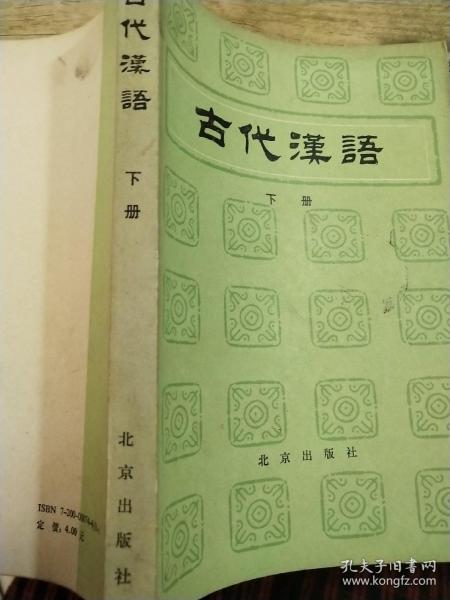 古代漢語
下册
北京出版社
古代漢語
下册
北京出版社
定價：4.00元
孔夫子旧书网
www.kongfz.com